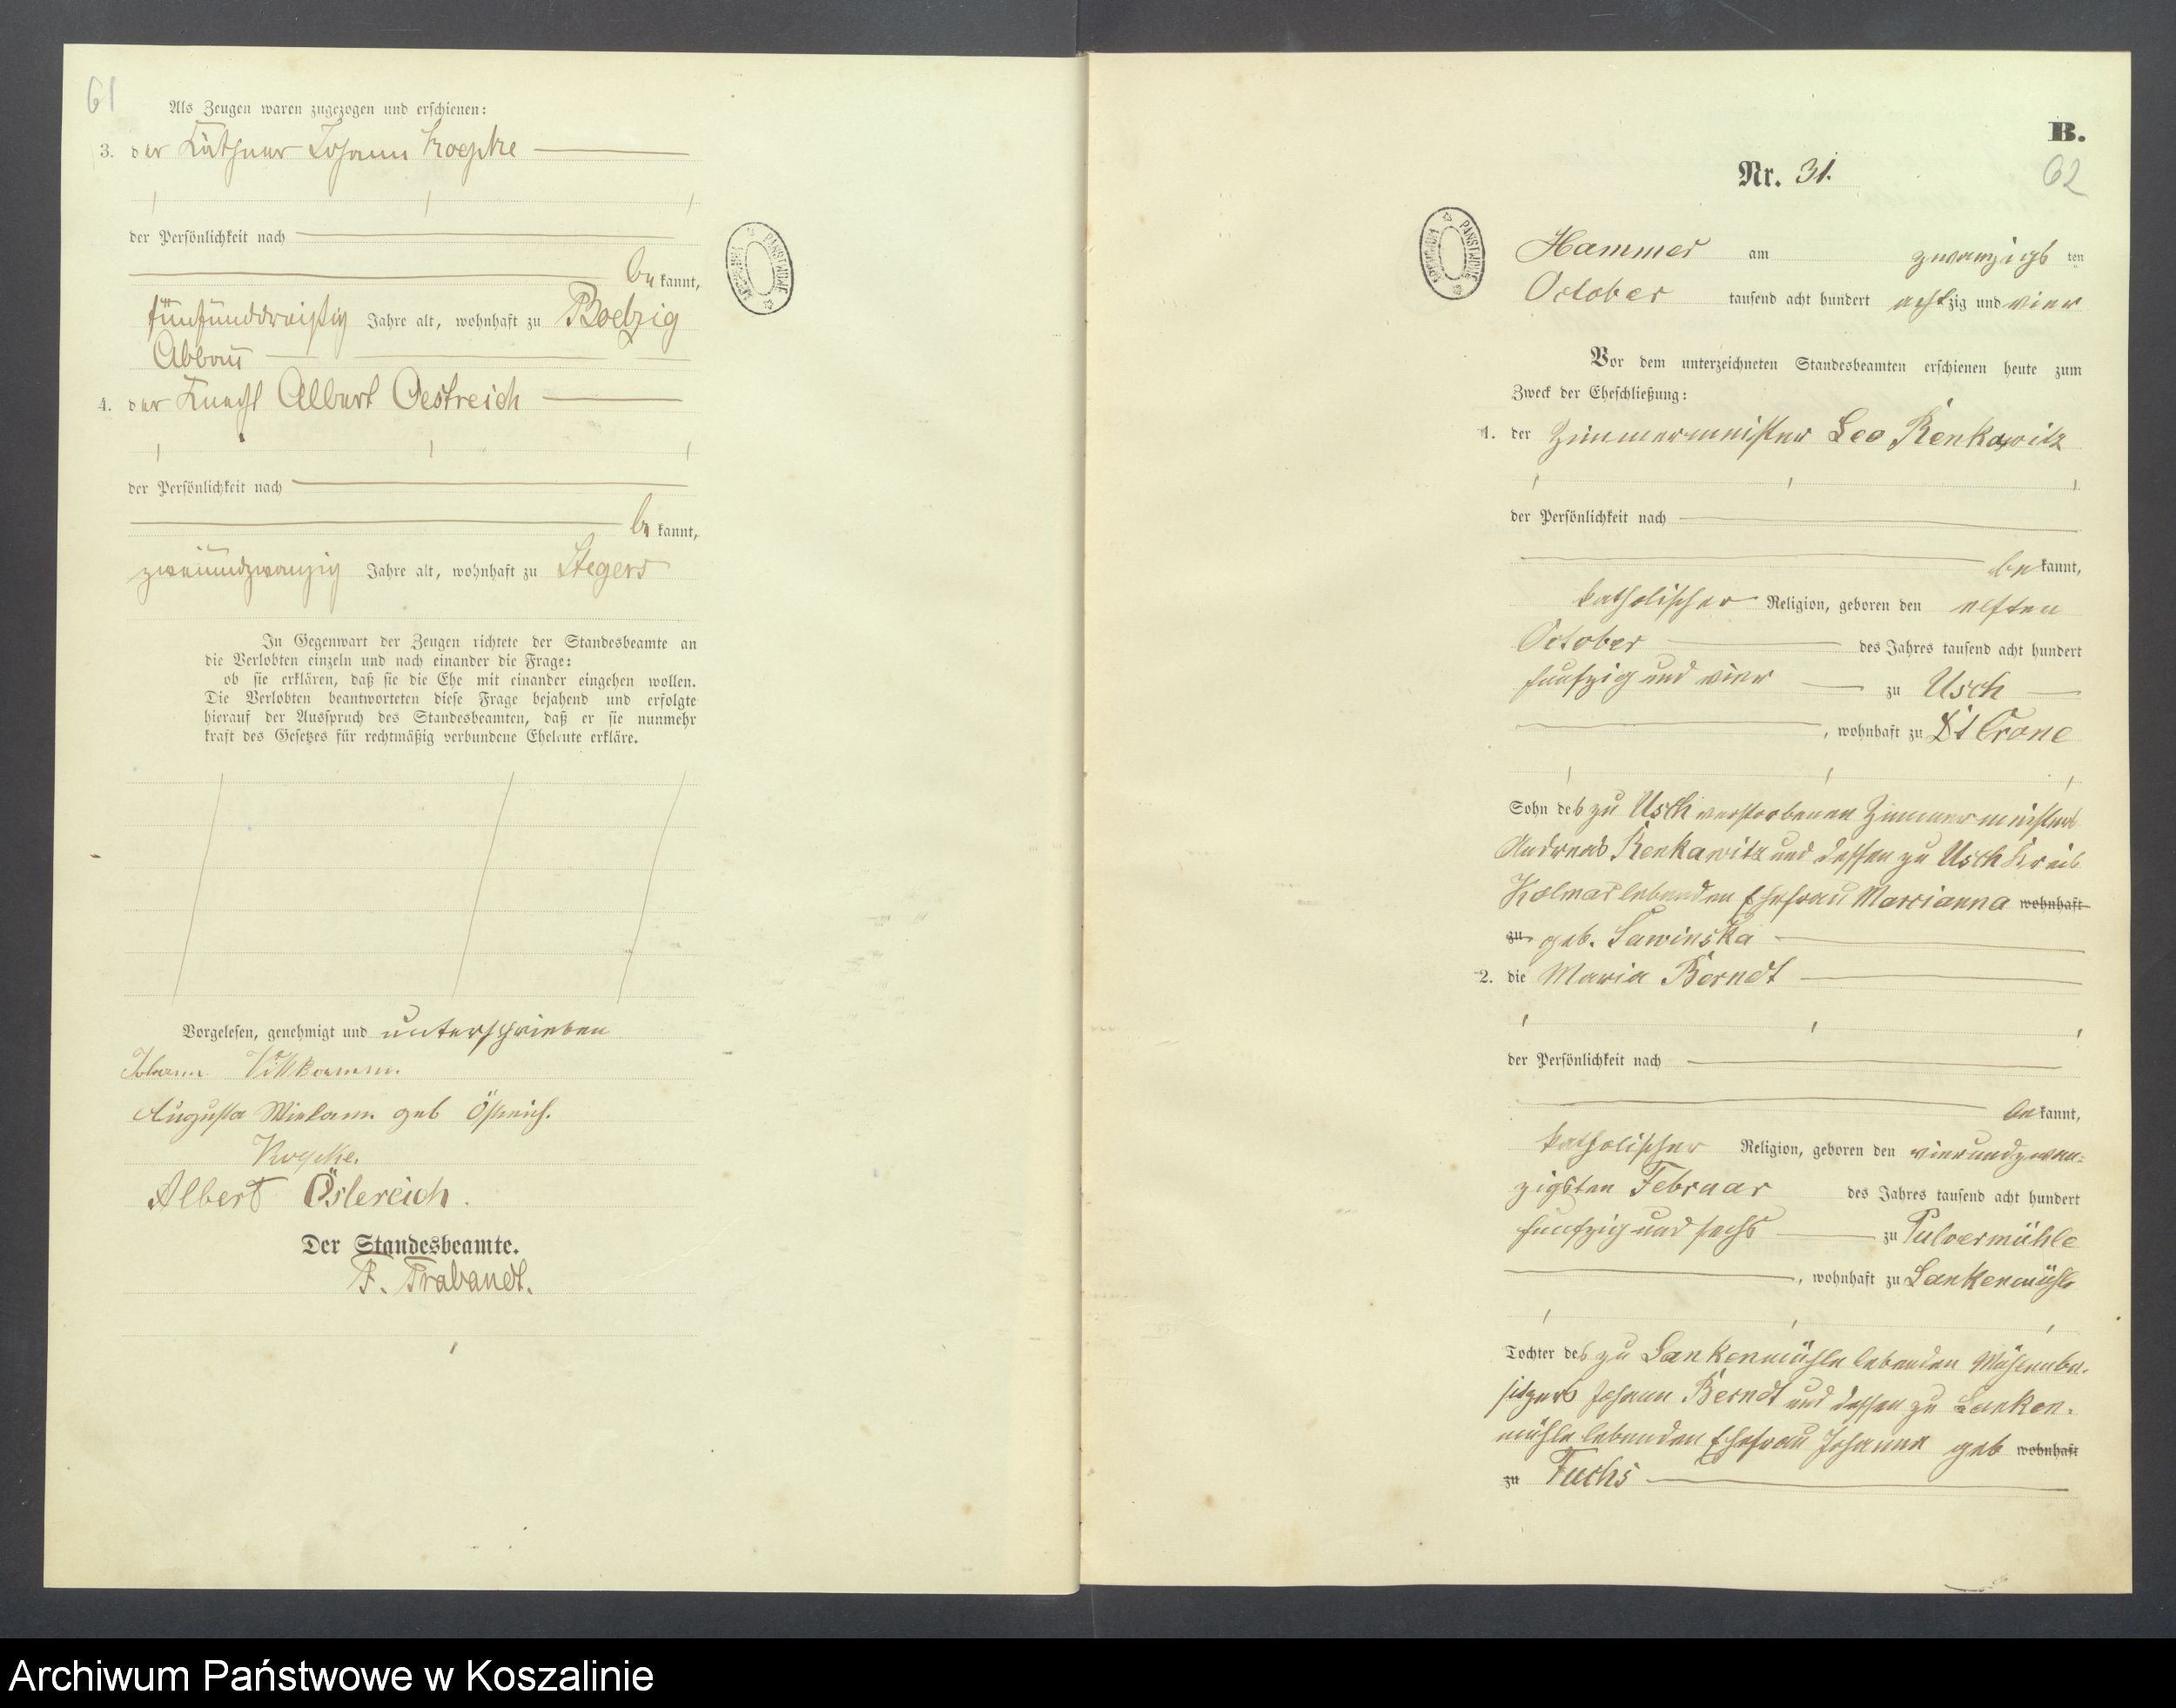 61
Als Zeugen waren zugezogen und erschienen:
3. der Käthner Johann Koepke
der Persönlichkeit nach
be kannt,
fünfunddreißig Jahre alt, wohnhaft zu Boelzig
Abbau
4. der Knecht Albert Oestreich
der Persönlichkeit nach
be kannt,
zweiundzwanzig Jahre alt, wohnhaft zu Stegers
In Gegenwart der Zeugen richtete der Standesbeamte an
die Verlobten einzeln und nach einander die Frage:
ob sie erklären, daß sie die Ehe mit einander eingehen wollen.
Die Verlobten beantworteten diese Frage bejahend und erfolgte
hierauf der Ausspruch des Standesbeamten, daß er sie nunmehr
kraft des Gesetzes für rechtmäßig verbundene Eheleute erkläre.
Vorgelesen, genehmigt und unterschrieben
Johann
Augusta geb Östreich.
Koepke.
Albert Östereich.
Der Standesbeamte.
F. Trabandt.
ARCHIWUM PAŃSTWOWE
B.
62
Nr. 31.
ARCHIWUM PAŃSTWOWE
Hammer am zwanzigs ten
October tausend acht hundert acht zig und vier
Vor dem unterzeichneten Standesbeamten erschienen heute zum
Zweck der Eheschließung:
1. der Zimmermeister Leo Renkawitz
der Persönlichkeit nach
be kannt,
katholischer Religion, geboren den elften
October des Jahres tausend acht hundert
funfzig und vier zu Usch
, wohnhaft zu Dt Crone
Sohn des zu Usch verstorbenen Zimmermeisters
Andreas Renkawitz und dessen zu Usch Kreis
Kolmar lebenden Ehefrau Marcianna wohnhaft
zu geb. Sawinska
2. die Maria Berndt
der Persönlichkeit nach
be kannt,
katholischer Religion, geboren den vierundzwan-
zigsten Februar des Jahres tausend acht hundert
funfzig und sechs zu Pulvermühle
, wohnhaft zu Lankenmühle
Tochter des zu Lankenmühle lebenden Mühlenbe-
sitzers Johann Berndt und dessen zu Lanken-
mühle lebenden Ehefrau Johanna geb wohnhaft
zu Fuchs
Archiwum Państwowe w Koszalinie